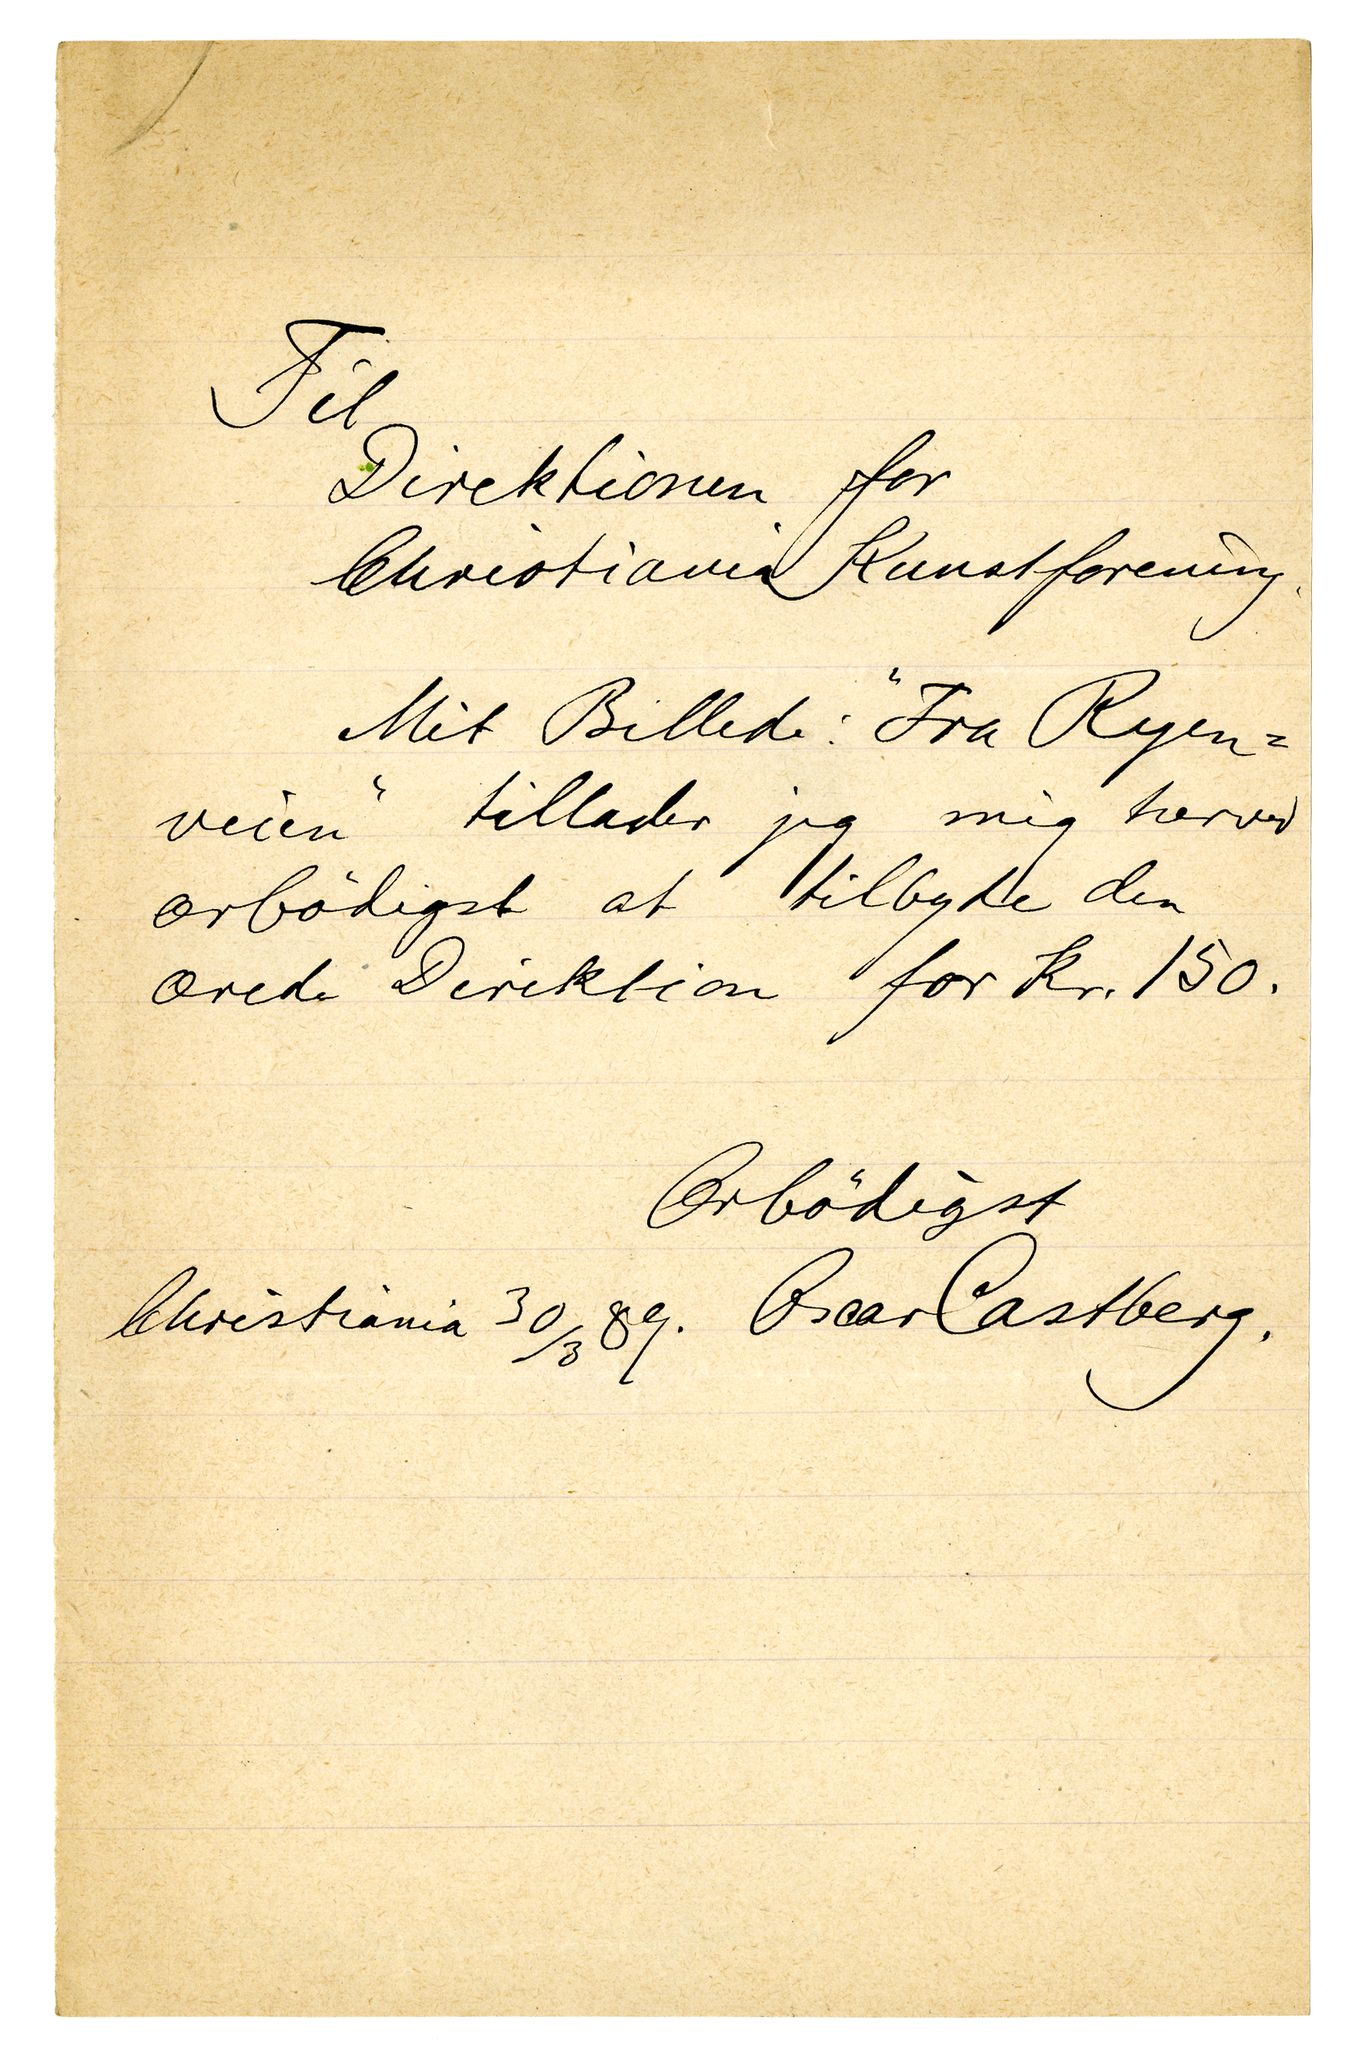 Til
Direktionen for
Christiania Kunstforening.
Mit Billede: "Fra Ryen=
veien" tillader jeg mig herved
ærbödigst at tilbyde den
ærede Direktion for Kr. 150.
Ærbödigst
Christiania 30/3 89. Oscar Castberg.